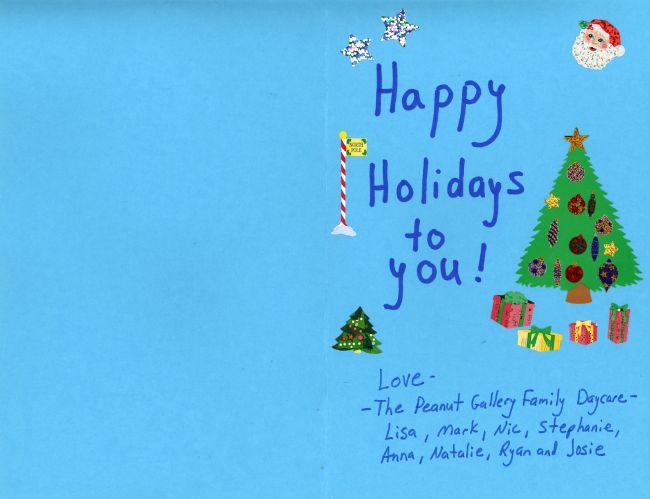 Happy
NORTH
POLE
Holidays
to
you!
Love-
-The Peanut Gallery Family Daycare-
Lisa, Mark, Nic, Stephanie,
Anna, Natalie, Ryan and Josie